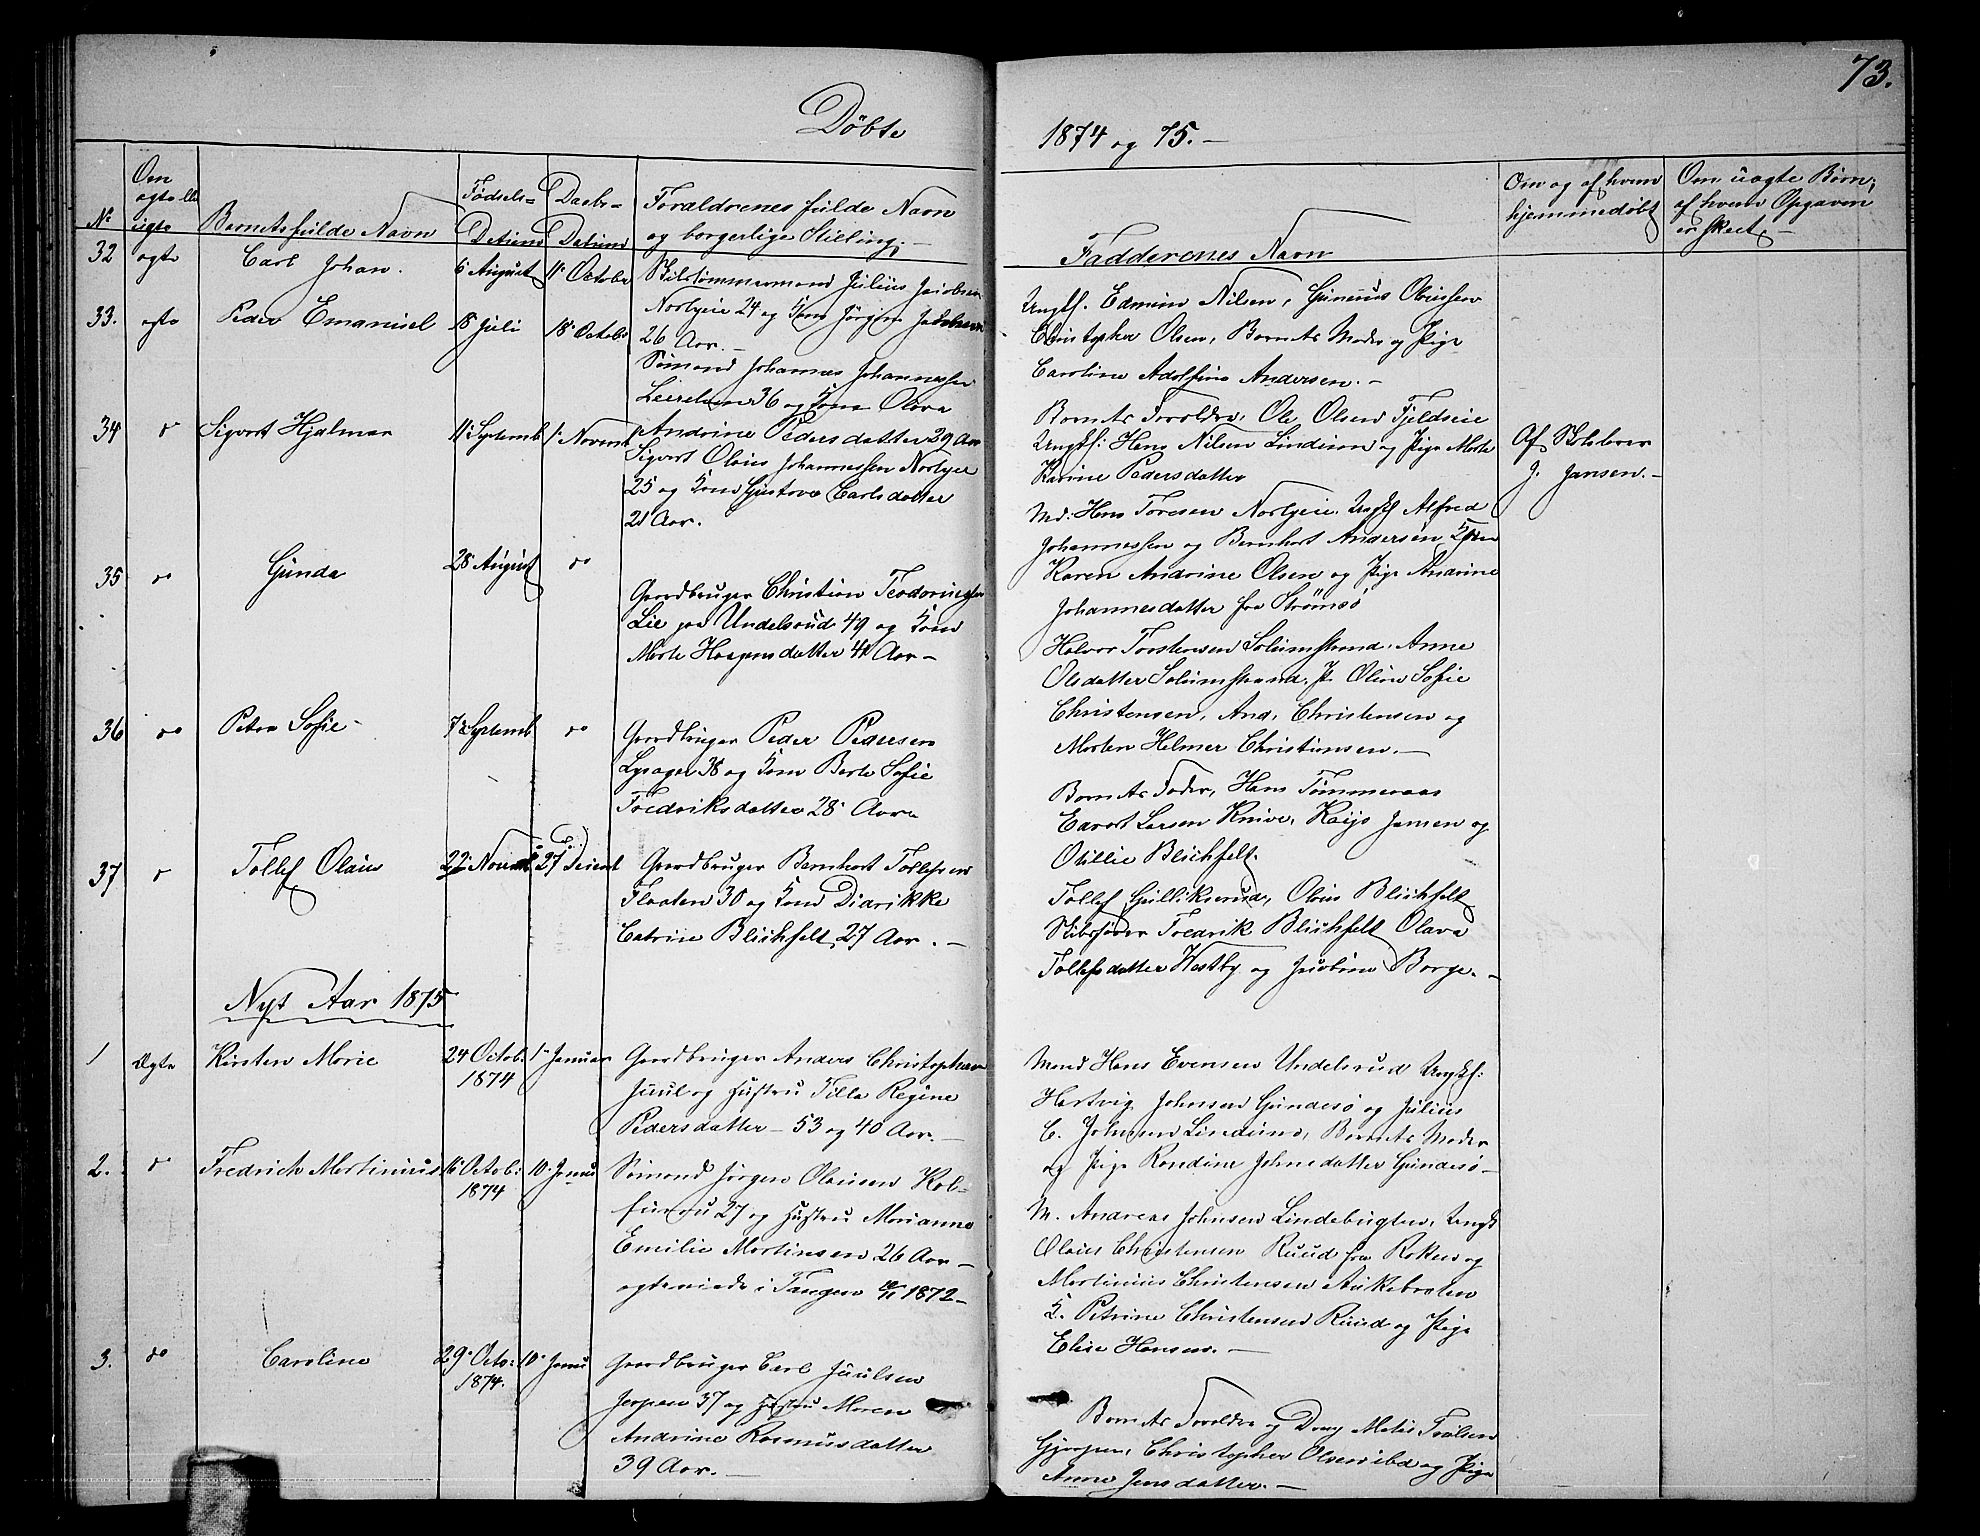 73.
Døbte
1874 og 75.-
No
Om ægte ell. uægte
Barnets fulde Navn
Fødsels-Datum
Daabs-Datum
Forældrenes fulde Navn
og borgerlige Stilling.-
Faddernes Navn
Om og af hvem
hjemmedøbt
Om uægte Børn,
af hvem Opgaven
er skeet.-
32 ægte Carl Johan. 6 August 11 Octobr
Skibstømmermand Julius Jacobsen
Nordgeie 24 og Kone Jørgine Jacobsen
26 Aar.-
Ungkf. Edmund Nilsen, Gunerius Olaussen
Christopher Olsen, Barnets Moder og Pige
Caroline Adolfine Andersen.-
33. ægte Peder Emanuel 18 Juli 18 Octobr
Sømand Johannes Johannessen
Leirelven 36 og Kone Olava
Andrine Pedersdatter 29 Aar
Barnets Forældre, Ole Olsen Fjeldseie
Ungkf: Hans Nilsen Lindum og Pige Marte
Karine Pedersdatter
34 do Sigvart Hjalmar 11 Septemb 1 Novemb
Sigvart Olaus Johannessen Nordgeie
25 og Kone Gustava Carlsdatter
21 Aar.
Md: Hans Toresen Nordgeie. Ungkf Alfred
Johannessen og Bernhart Andersen, Kone
Karen Andrine Olsen og Pige Andrine
Johannesdatter fra Strømsö
Af Skolelærer
J. Jansen.-
35 do Gunda 28 August do
Gaardbruger Christian Teodorussen
Lie paa Undelsrud 49 og Kone
Marte Haagensdatter 41 Aar-
Halvor Torstensen Solumstrand, Anne
Olsdatter Solumstrand, P. Oline Sofie
Christensen, And. Christensen og
Morten Helmer Christensen.-
36 do Petra Sofie- 7 Septemb do
Gaardbruger Peder Pedersen
Lysager 38 og Kone Berte Sofie
Fredriksdatter 28 Aar
Barnets Fader, Hans Tømmeraas
Edvart Larsen Knive, Kaijs Jansen og
Otillie Blichfelt.
37 do Tollef Olaus 22 Novemb 27 Decemb
Gaardbruger Bernhart Tollefsen
Flaaten 30 og Kone Didrikke
Catrine Blichfelt, 27 Aar.-
Tollef Gulliksrud, Olaus Blichfelt
Skibsfører Fredrik Blichfelt Olava
Tollefsdatter Hestby og Jacobine Borge.-
Nyt Aar 1875
1 Ægte Kirsten Marie 24 Octob. 1874 1 Januar
Gaardbruger Anders Christophersen
Juul og Hustru Tilla Regine
Pedersdatter- 53 og 40 Aar.-
Mand Hans Evensen Undelsrud Ungkf:
Hartvig Johnsen Gundesö og Julius
C. Johnsen Lindum, Barnets Moder
og Pige Randine Johnsdatter Gundesö-
2. do Fredrich Martinius 16 Octob: 1874 10 Janu
Sømand Jørgen Olausen Kol-
furu 27 og Hustru Marianne
Emilie Martinsen 26 Aar-
ægteviede i Tangen 1872-
M. Andreas Johnsen Lindebugten, Ungk
Olaus Christensen Ruud fra Røken og
Martinius Christensen Aukebraten
K. Petrine Christensen Ruud og Pige
Elise Hansen.-
3. do Caroline 29 Octo: 1874. 10 Janu
Gaardbruger Carl Juulsen
Jerpen 37 og Hustru Maren
Andrine Rasmusdatter
39 Aar.-
Barnets Forældre og Dreng Mattis Trulsen
Gjerpen, Christopher Olsen ibd og Pige
Anne Jensdatter.-